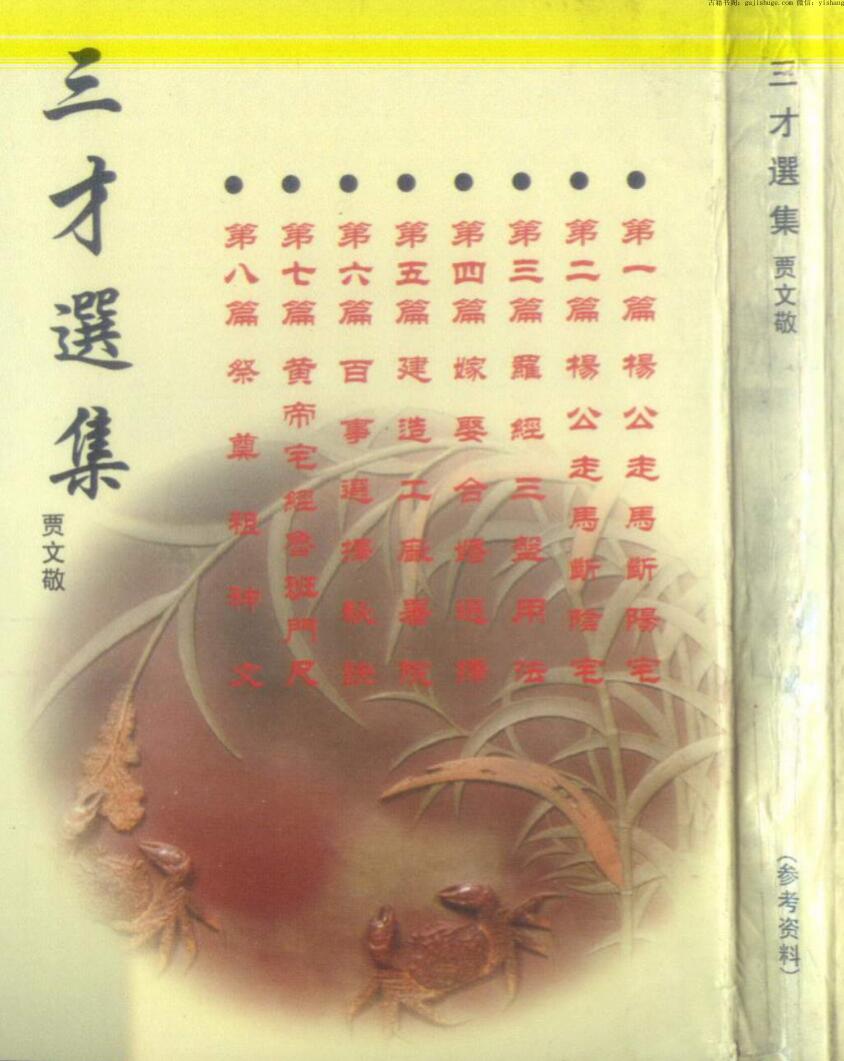 古籍书阁：gujishuge.com 微信：yishang
三才選集
贾文敬
第一篇 楊公走馬斷陽宅
第二篇 楊公走馬斷陰宅
第三篇 羅經三盤用法
第四篇 嫁娶合婚选擇
第五篇 建造工廠署院
第六篇 百事選擇秘訣
第七篇 黄帝宅經魯班門尺
第八篇 祭奠祖神文
三才選集 贾文敬
（参考资料）